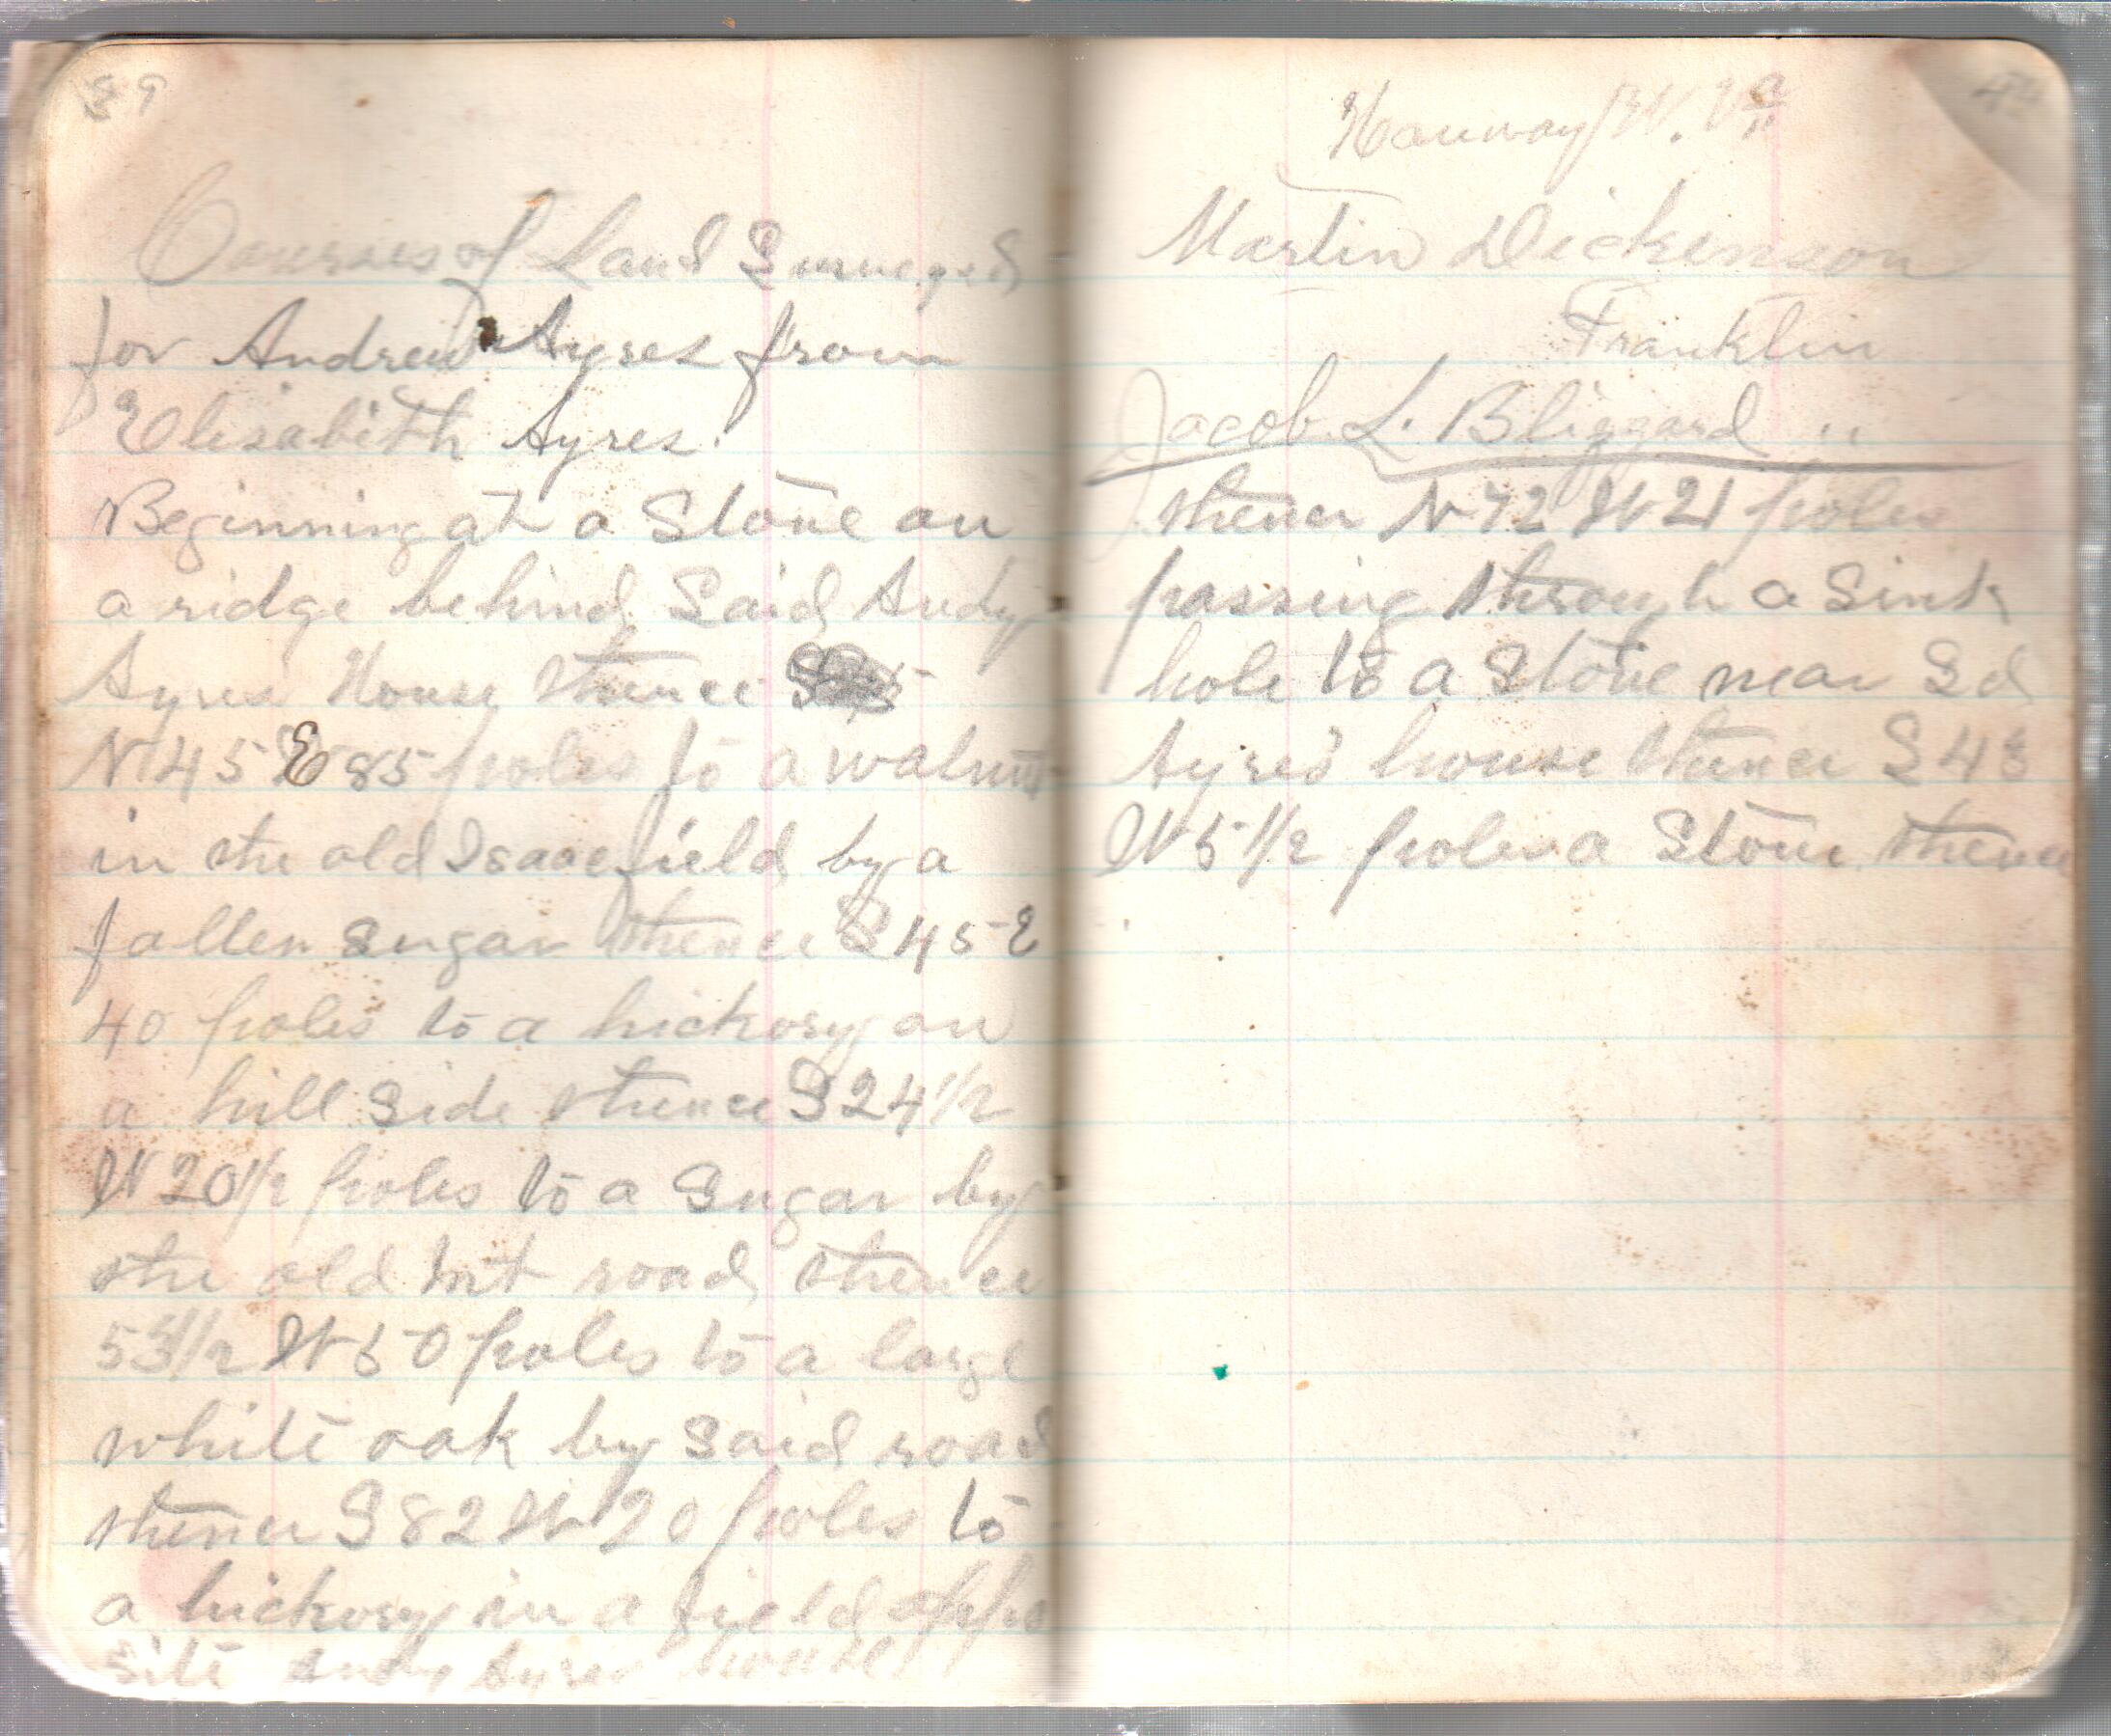 39
Courses of Land Surveyed
for Andrew Ayres from
Elisabith Ayres.
Beginning at a Stone on
a ridge behind Said Andy
Ayres House thence
N 45 E 85 poles to a walnut
in the old Isaac field by a
fallen Sugar thence S 45 E
40 poles to a hickory on
a hill Side thence S 24 1/2
W 20 1/2 poles to a Sugar by
the old mt road thence
W 50 poles to a large
white oak by Said road
thence S 82 W 20 poles to
a hickory in a field oppo
Site Andy Ayres house
W. Va
Martin Dickenson
Franklin
Jacob L. Blizzard "
thence N 42 W 21 poles
passing through a Sink
hole to a Stone near Sd
Ayres house thence S 43
W 5 1/2 poles a Stone thence